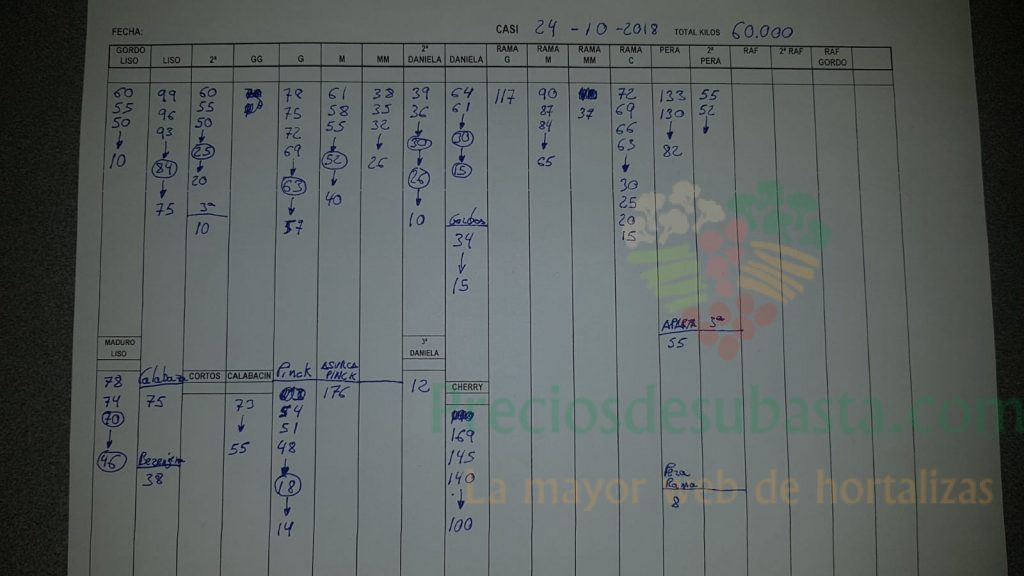 FECHA: CASI 24-10-2018 TOTAL KILOS 60.000
GORDO LISO LISO 2ª GG G M MM 2ª DANIELA DANIELA RAMA G RAMA M RAMA MM RAMA C PERA 2ª PERA RAF 2ª RAF RAF GORDO
60 99 60 78 61 38 39 64 117 90 72 133 55
55 96 55 75 58 35 36 61 87 37 69 130 52
50 93 50 72 55 32 30 30 84 66 ↓ ↓
↓ ↓ 25 69 ↓ ↓ ↓ ↓ ↓ 63 82
10 84 ↓ ↓ 52 26 26 15 65 ↓
↓ 20 63 ↓ ↓ 30
75 3ª ↓ 40 10 25
10 57 34 20
↓ 15
15
APARTE 3ª
55
MADURO LISO 3ª DANIELA
78 Calabaza CORTOS CALABACIN Pinck ASURCA PINCK 12 CHERRY
74 75 73 54 176 169
70 ↓ 51 145
↓ 55 48 140
46 Berenjena ↓ ↓
38 18 100
↓
14
Pera Rama
8
Preciosdesubasta.com
La mayor web de hortalizas